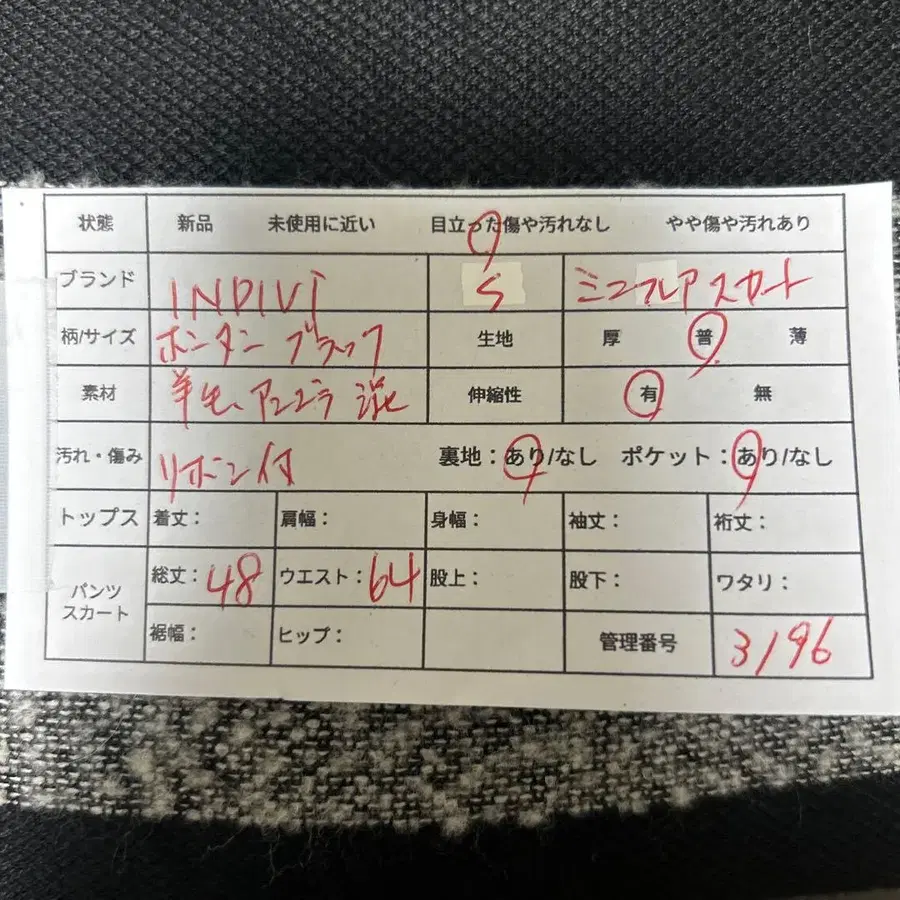 状態 新品 未使用に近い 目立った傷や汚れなし やや傷や汚れあり
ブランド INDIVI S ミニフレアスカート
柄/サイズ ホンタン ブラック 生地 厚 普 薄
素材 羊毛、アンゴラ 混 伸縮性 有 無
汚れ・傷み リボン付 裏地：あり/なし ポケット：あり/なし
トップス 着丈： 肩幅： 身幅： 袖丈： 裄丈：
パンツ スカート 総丈：48 ウエスト：64 股上： 股下： ワタリ：
裾幅： ヒップ： 管理番号 3196